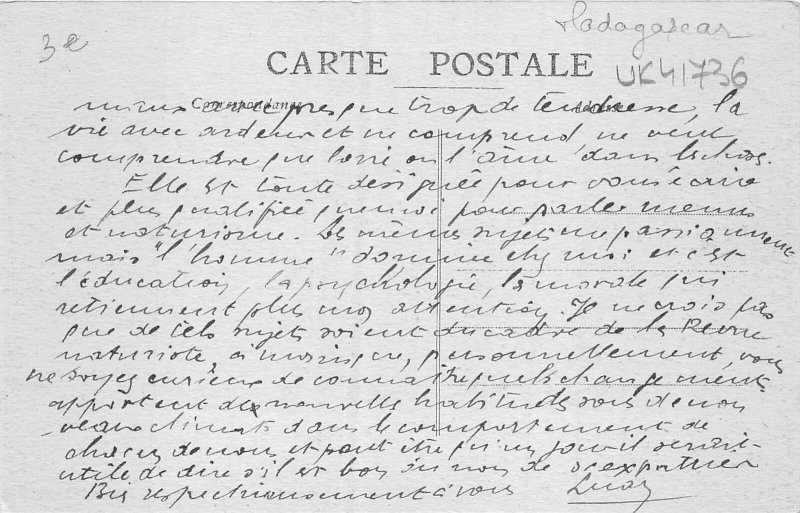 Madagascar
3e
CARTE POSTALE
UK41736
Correspondance
avec presque trop de tendresse, la
vie avec ardeur et ne comprend ne veut
comprendre que la vie ou l'âme dans les choses.
Elle est toute désignée pour vous écrire
et plus qualifiée que moi pour parler menus
et naturisme. Les mêmes sujets me passionnent
mais "l'homme" domine chez moi et c'est
l'éducation, la psychologie, la morale qui
retiennent plus mon attention. Je ne crois pas
que de tels sujets soient du cadre de la Revue
naturiste, à moins que, personnellement, vous
ne soyez curieux de connaître quels changements
apportent de nouvelles habitudes sous de nouveaux climats dans le comportement de
chacun de nous et peut être qu'un jour il serait
utile de dire s'il est bon ou non de s'expatrier
Bien respectueusement à vous